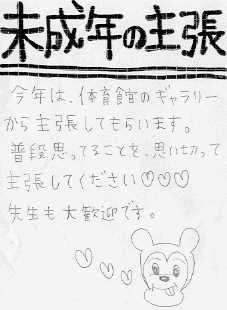 未成年の主張
今年は、体育館のギャラリー
から主張してもらいます。
普段思ってることを、思い切って
主張してください♡♡♡
先生も大歓迎です。